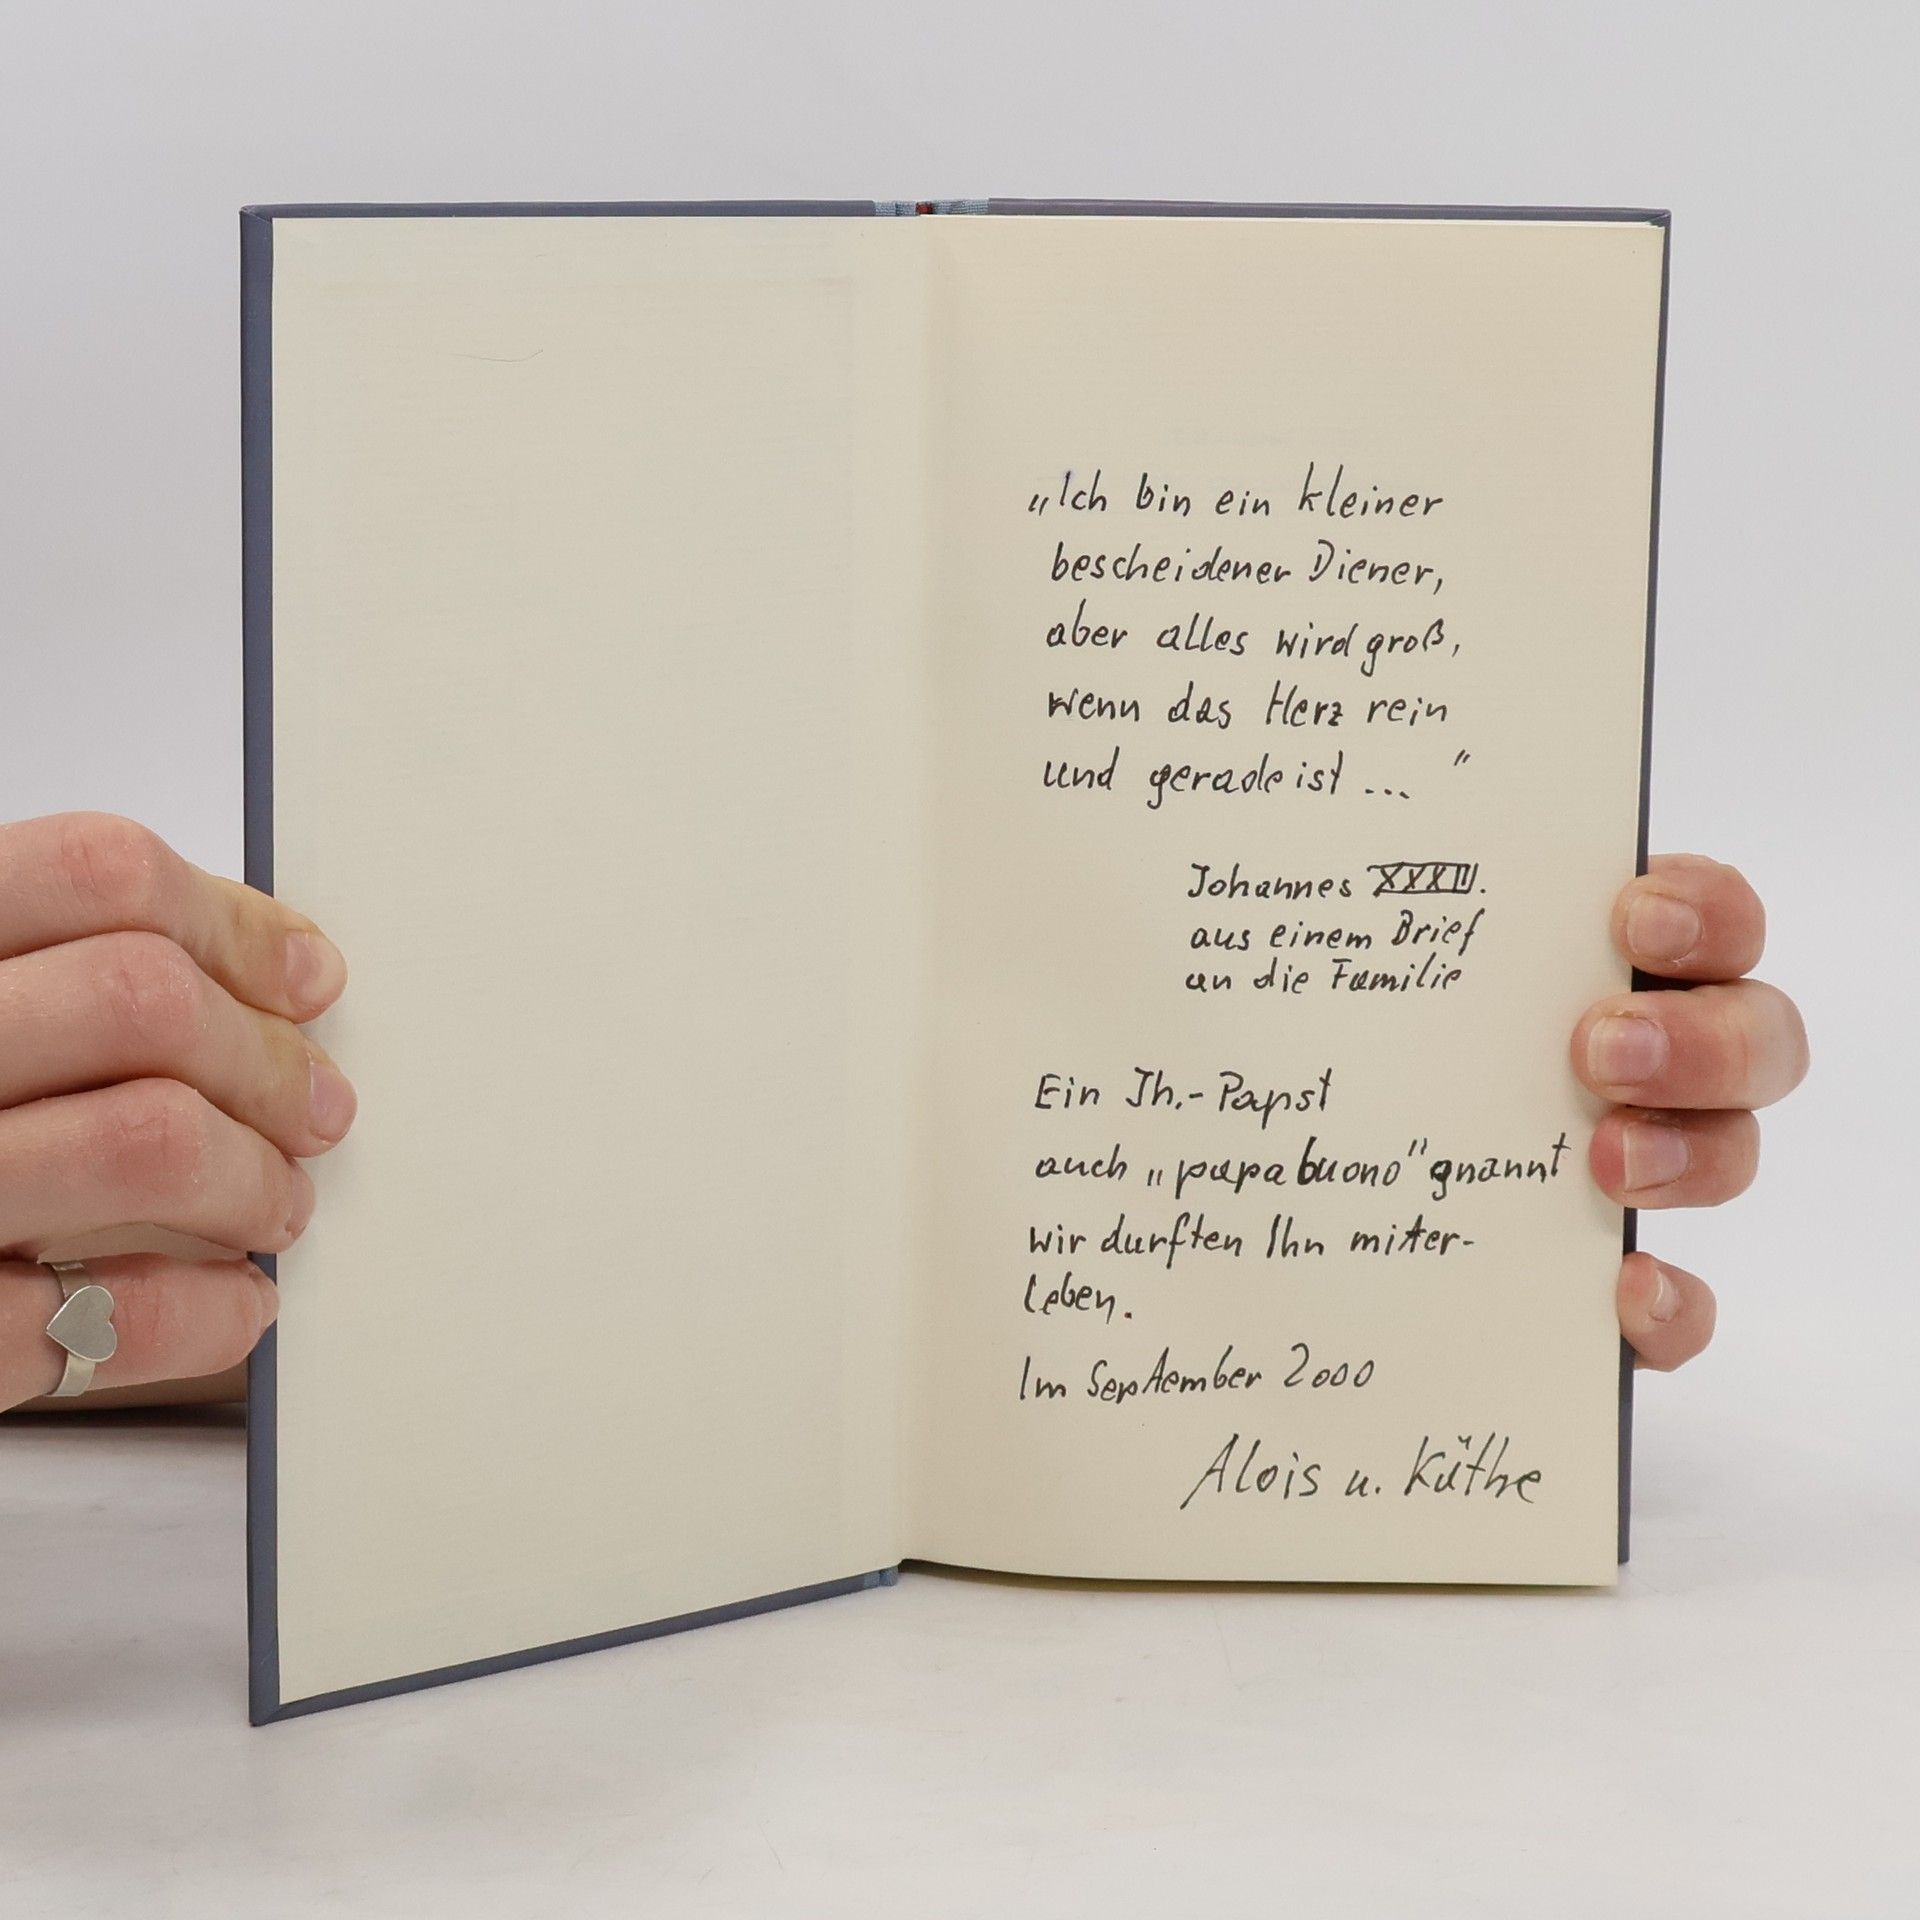 „Ich bin ein kleiner
bescheidener Diener,
aber alles wird groß,
wenn das Herz rein
und gerade ist ... "
Johannes XXXIII.
aus einem Brief
an die Familie
Ein Jh.-Papst
auch „papa buono" gnannt
wir durften Ihn miter-
leben.
Im September 2000
Alois u. Käthe